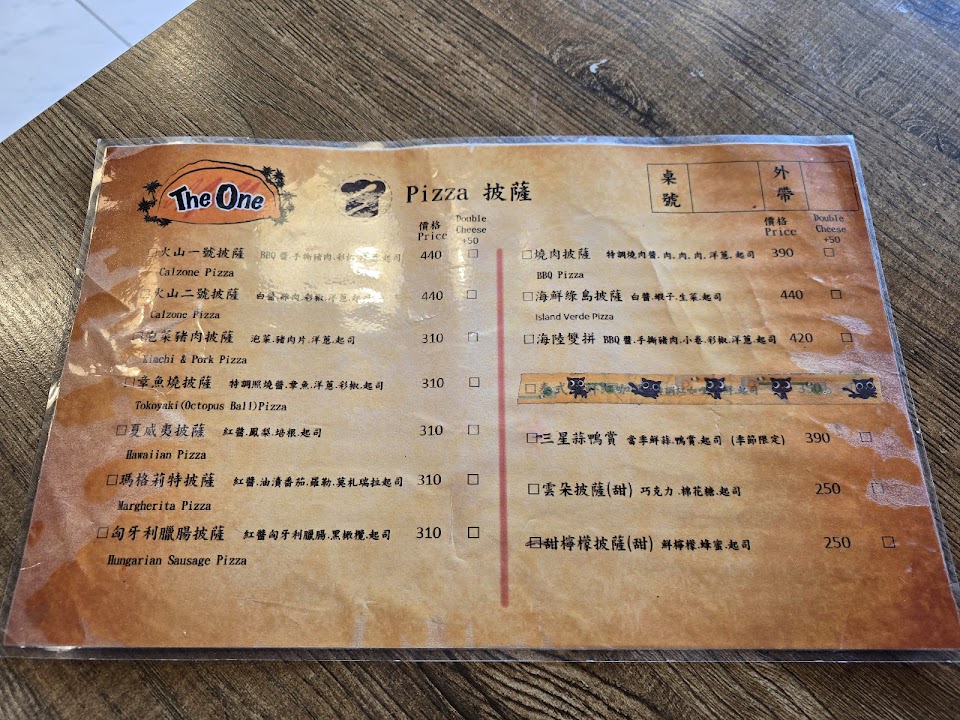 The One
Pizza 披薩
桌號
外帶
價格 Price
Double Cheese +50
□火山一號披薩 BBQ醬.手撕豬肉.彩椒.洋蔥.起司 440 □
Calzone Pizza
□火山二號披薩 白醬.雞肉.彩椒.洋蔥.起司 440 □
Calzone Pizza
□泡菜豬肉披薩 泡菜.豬肉片.洋蔥.起司 310 □
Kimchi & Pork Pizza
□章魚燒披薩 特調照燒醬.章魚.洋蔥.彩椒.起司 310 □
Tokoyaki(Octopus Ball)Pizza
□夏威夷披薩 紅醬.鳳梨.培根.起司 310 □
Hawaiian Pizza
□瑪格莉特披薩 紅醬.油漬番茄.羅勒.莫札瑞拉起司 310 □
Margherita Pizza
□匈牙利臘腸披薩 紅醬匈牙利臘腸.黑橄欖.起司 310 □
Hungarian Sausage Pizza
價格 Price
Double Cheese +50
□燒肉披薩 特調燒肉醬.肉.肉.肉.洋蔥.起司 390 □
BBQ Pizza
□海鮮綠島披薩 白醬.蝦子.生菜.起司 440 □
Island Verde Pizza
□海陸雙拼 BBQ醬.手撕豬肉.小卷.彩椒.洋蔥.起司 420 □
□三星蒜鴨賞 當季鮮蒜.鴨賞.起司 (季節限定) 390 □
□雲朵披薩(甜) 巧克力.棉花糖.起司 250 □
□甜檸檬披薩(甜) 鮮檸檬.蜂蜜.起司 250 □